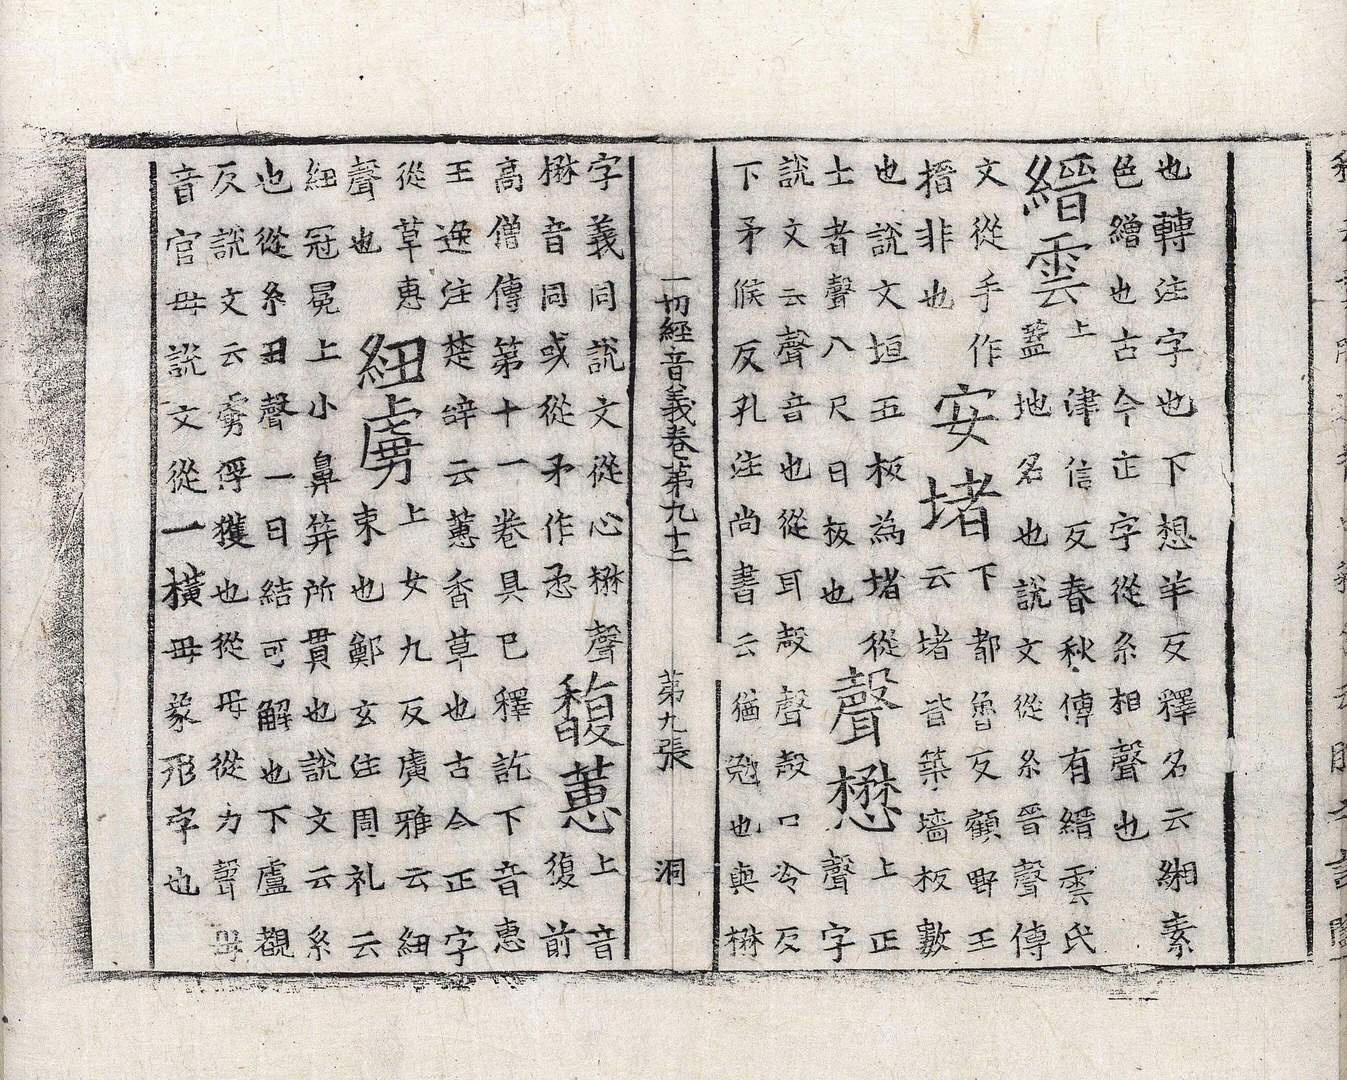 也轉注字也下想羊反釋名云緗素
色繒也古今正字從糸相聲也
縉雲上津信反春秋傳有縉雲氏
蓋地名也說文從糸晉聲傳
文從手作搢非也
安堵下都魯反顧野王
云堵皆築墻板數
也說文垣五板為堵從
士者聲八尺曰板也
聲懋上正聲字
說文云聲音也從耳殸聲殸口冷反
下矛候反孔注尚書云猶勉也與楙
一切經音義卷第九十二 第九張 洞
字義同說文從心楙聲
楙音同或從矛作悉
馥蕙上音復前
高僧傳第十一卷具已釋訖下音惠
王逸注楚辞云蕙香草也古今正字
從草惠聲也
紐虜上女九反廣雅云紐
束也鄭玄注周礼云
紐冠冕上小鼻笄所貫也說文云糸
也從糸丑聲一曰結可解也下盧覩
反說文云虜俘獲也從毌從力聲毌
音官毌說文從一橫毌象形字也